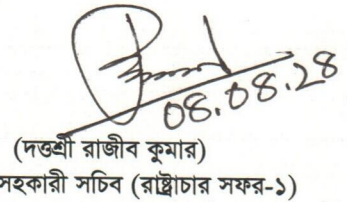 ০৪.০৪.২৪
(দত্তশ্রী রাজীব কুমার)
সহকারী সচিব (রাষ্ট্রাচার সফর-১)